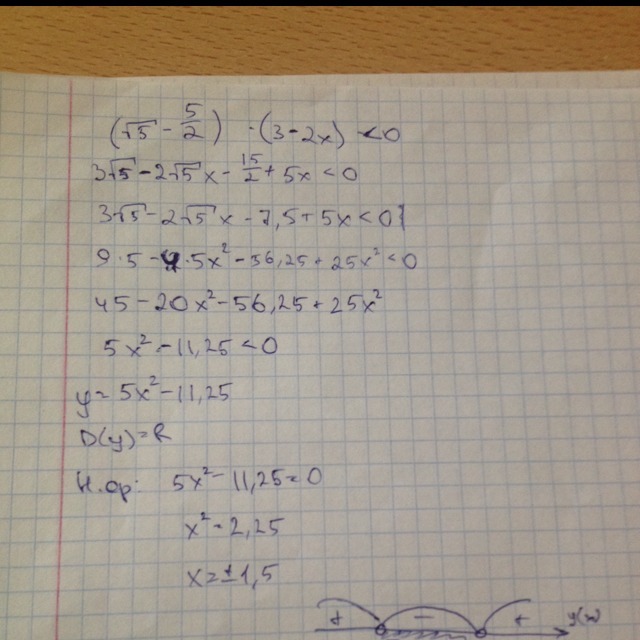 (√5 - 5/2) · (3 - 2x) < 0
3√5 - 2√5x - 15/2 + 5x < 0
3√5 - 2√5x - 7,5 + 5x < 0
9·5 - 4·5x² - 56,25 + 25x² < 0
45 - 20x² - 56,25 + 25x²
5x² - 11,25 < 0
y = 5x² - 11,25
D(y) = R
Н.ф: 5x² - 11,25 = 0
x² = 2,25
x = ±1,5
+ - + y(x)